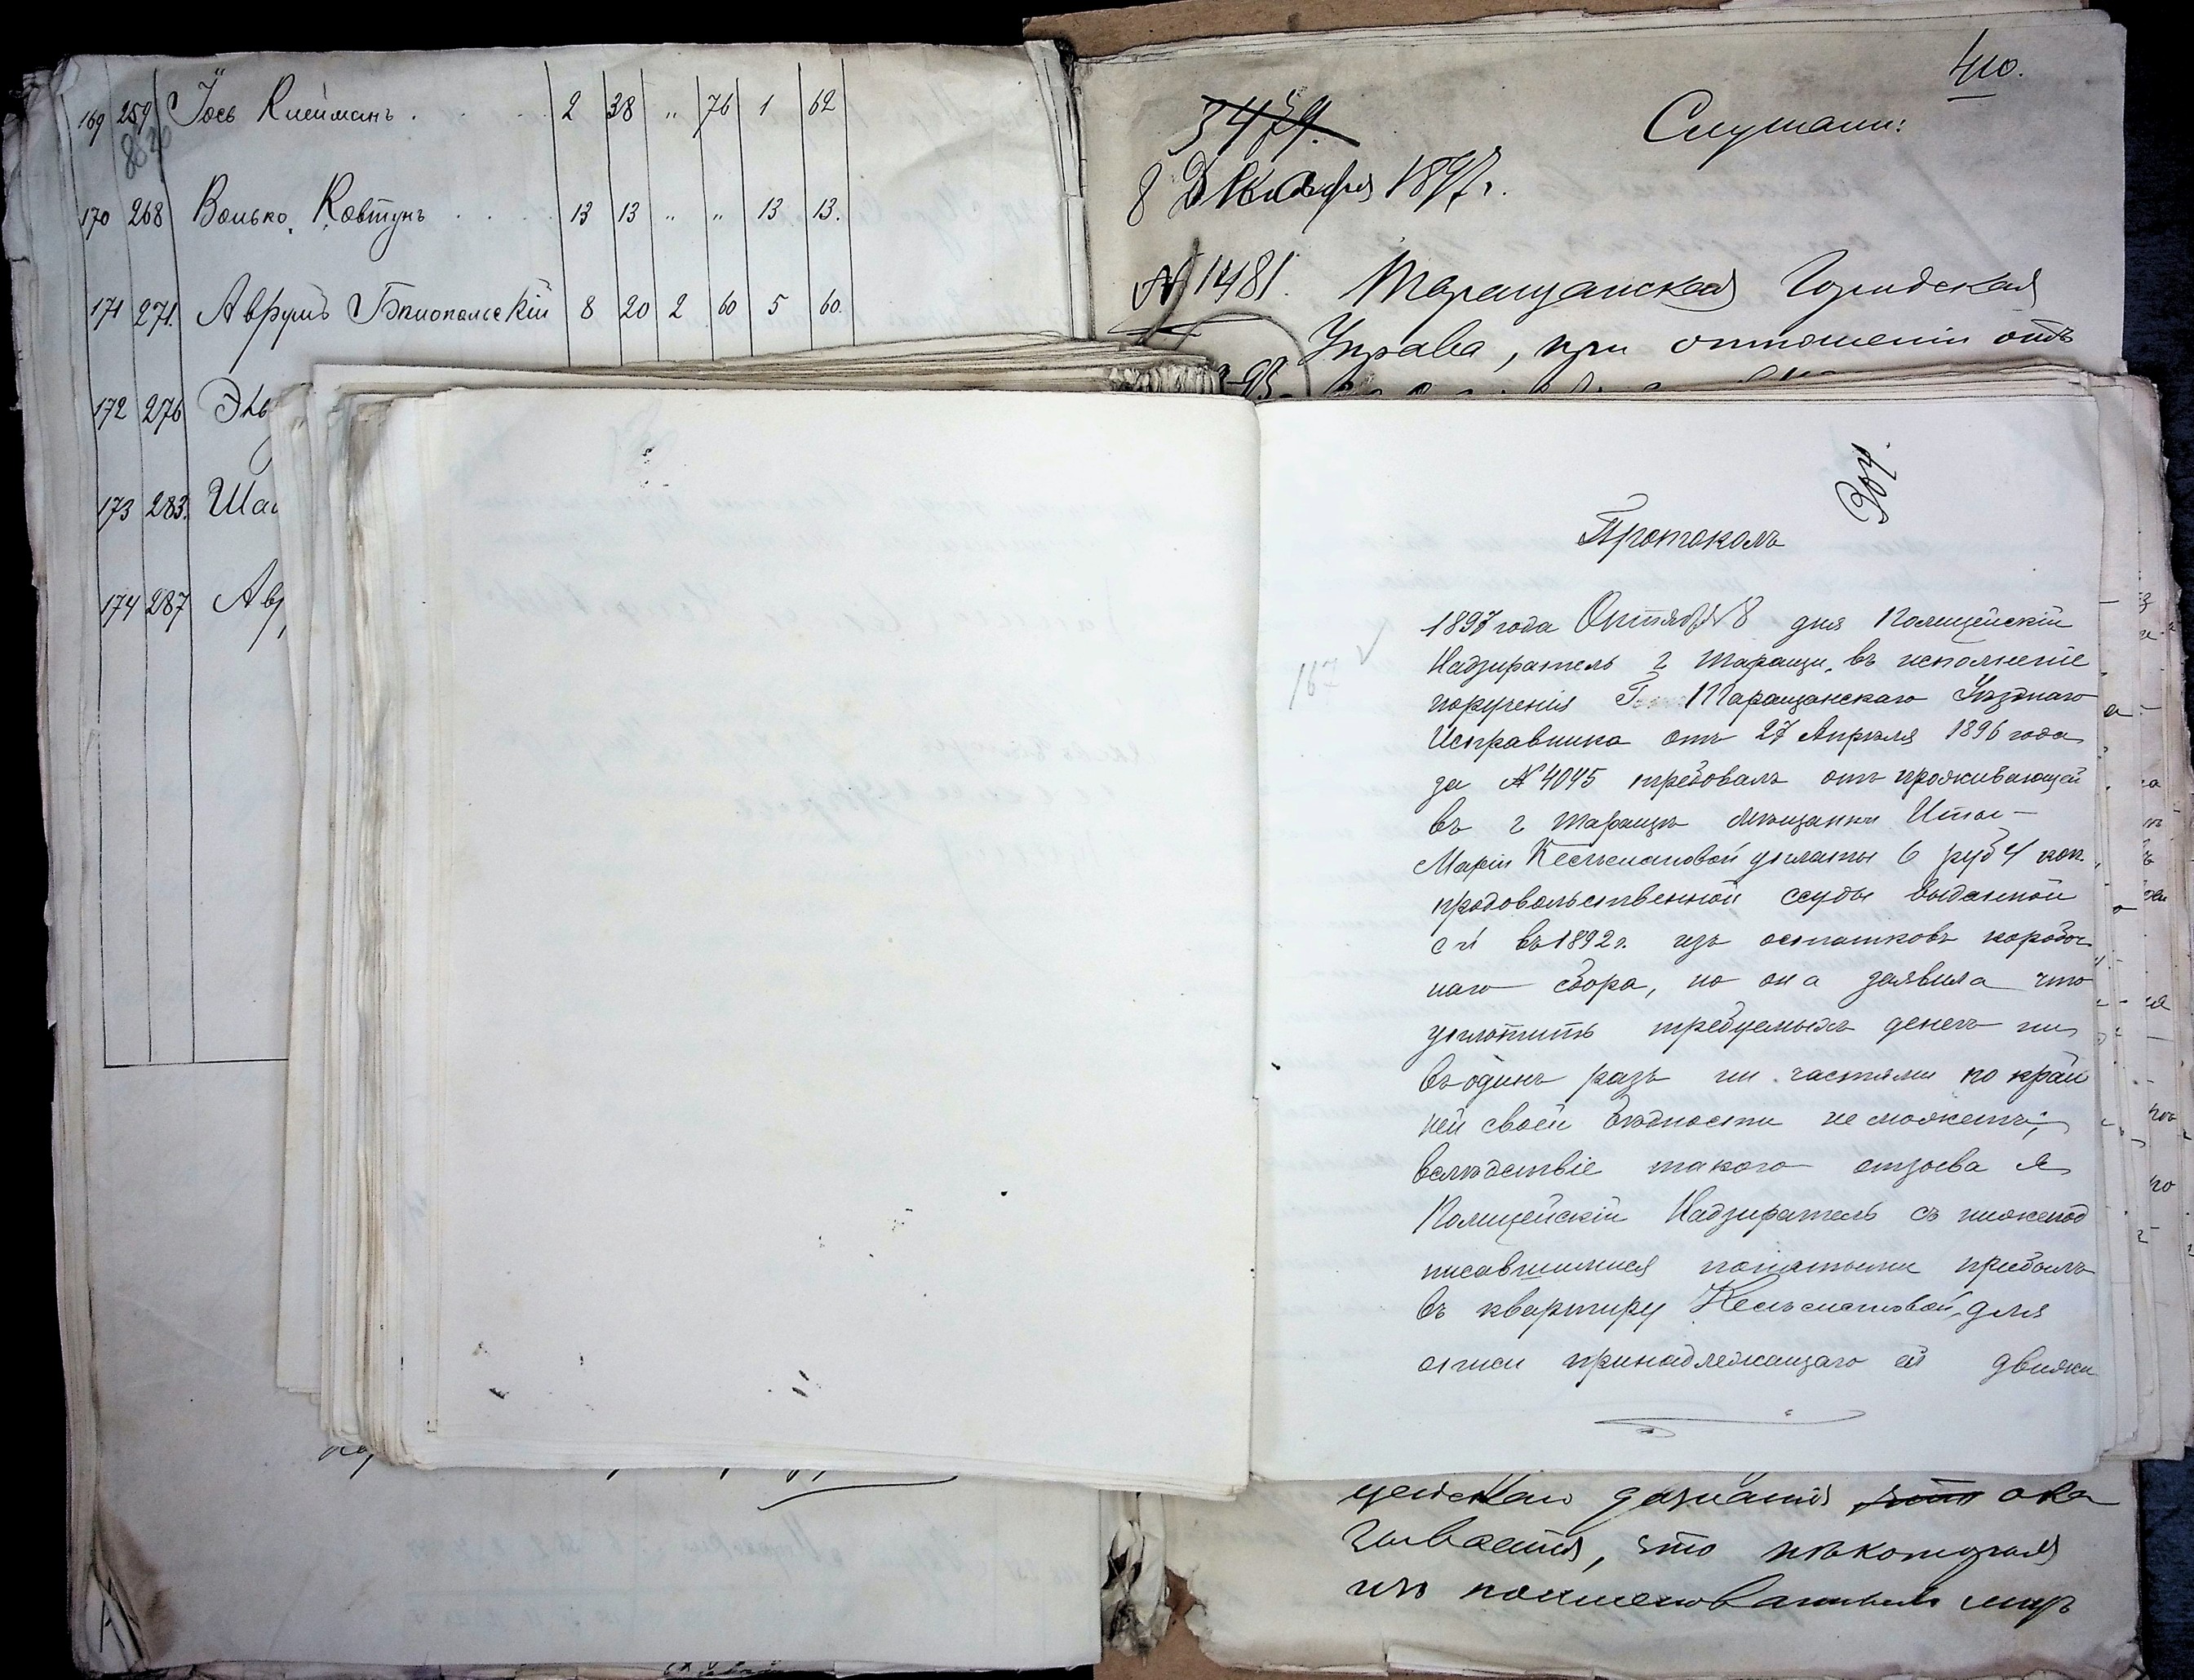 169 259 Іось Клейманъ . . . 2 38 " 76 1 62
170 268 Волько Ковтунъ . . . 13 13 " " 13 13.
171 271. Аврумъ Бѣлопольскій 8 20 2 60 5 60.
172 276
173 283.
174 287
410.
Слушали:
8 Декабря 1897 г.
№ 1481. Таращанская Городская
Управа, при отношеніи отъ
204.
Протоколъ
167
1897 года Октября 8 дня Полицейскій
Надзиратель г Таращи, въ исполненіе
порученія Г. Таращанскаго Уѣзднаго
Исправника отъ 27 Апрѣля 1896 года
за № 4045 требовалъ отъ проживающей
въ г Таращѣ мѣщанки
Маріи уплаты 6 руб 4 коп.
продовольственной ссуды выданной
ей въ 1892 г. изъ остатковъ коробоч
наго сбора, но она заявила что
уплатить требуемыхъ денегъ ни
въ одинъ разъ ни частями по край
ней своей бѣдности не можетъ;
вслѣдствіе такого отзыва я
Полицейскій Надзиратель съ нижепод
писавшимися понятыми прибылъ
въ квартиру для
описи принадлежащаго ей движи
дознанія ока
зывается, что нѣкоторыя
изъ поименованныхъ